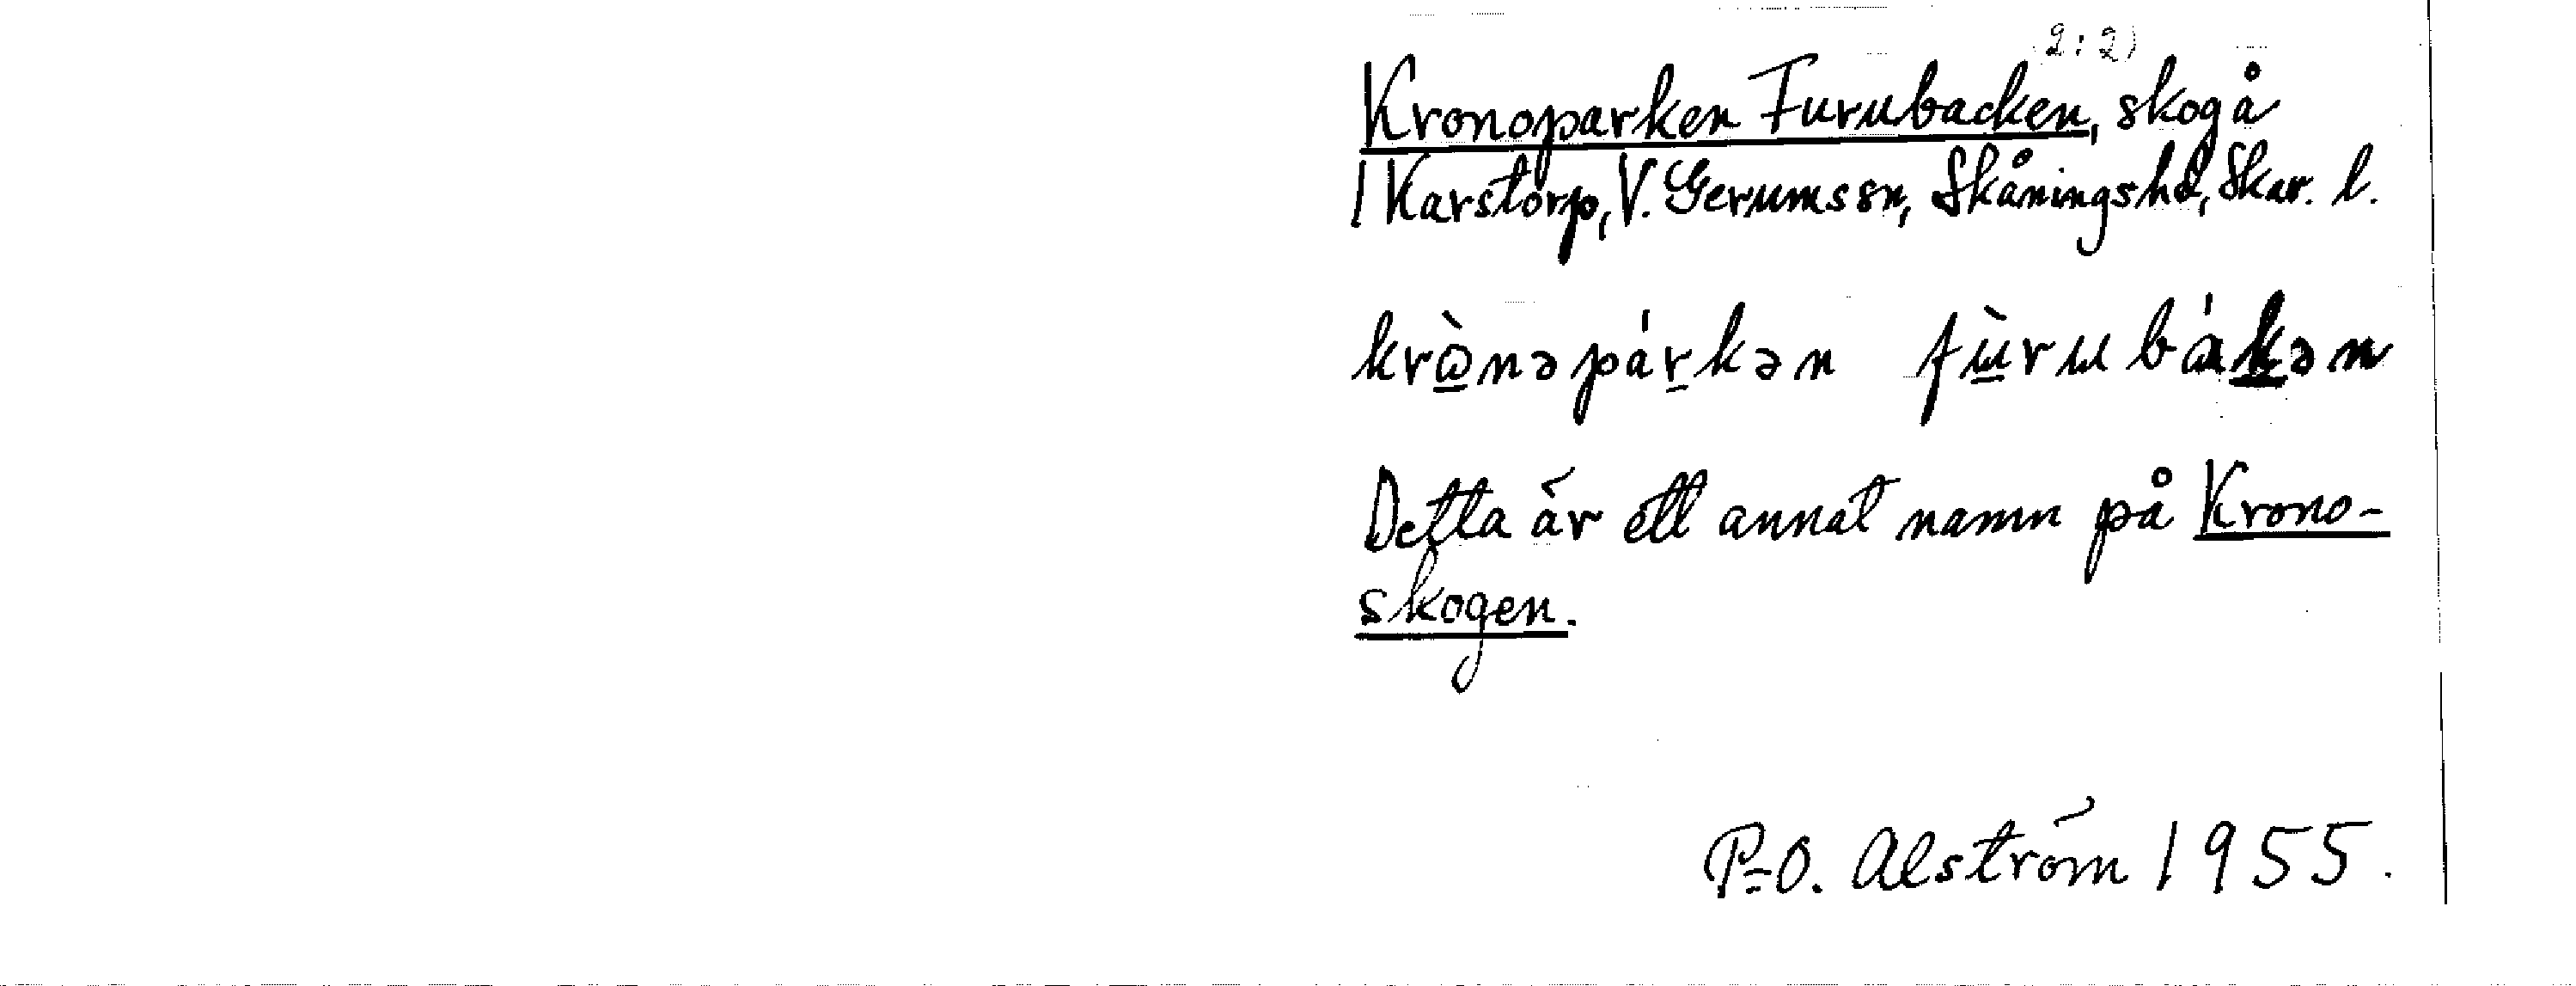 2:2)
Kronoparken Furubacken, skog å
1 Karstorp, V. Gerumssn, Skåningshd, Skar. l.
krònəpárkən fùrubákən
Detta är ett annat namn på Krono-
skogen.
P-O. Alström 1955.